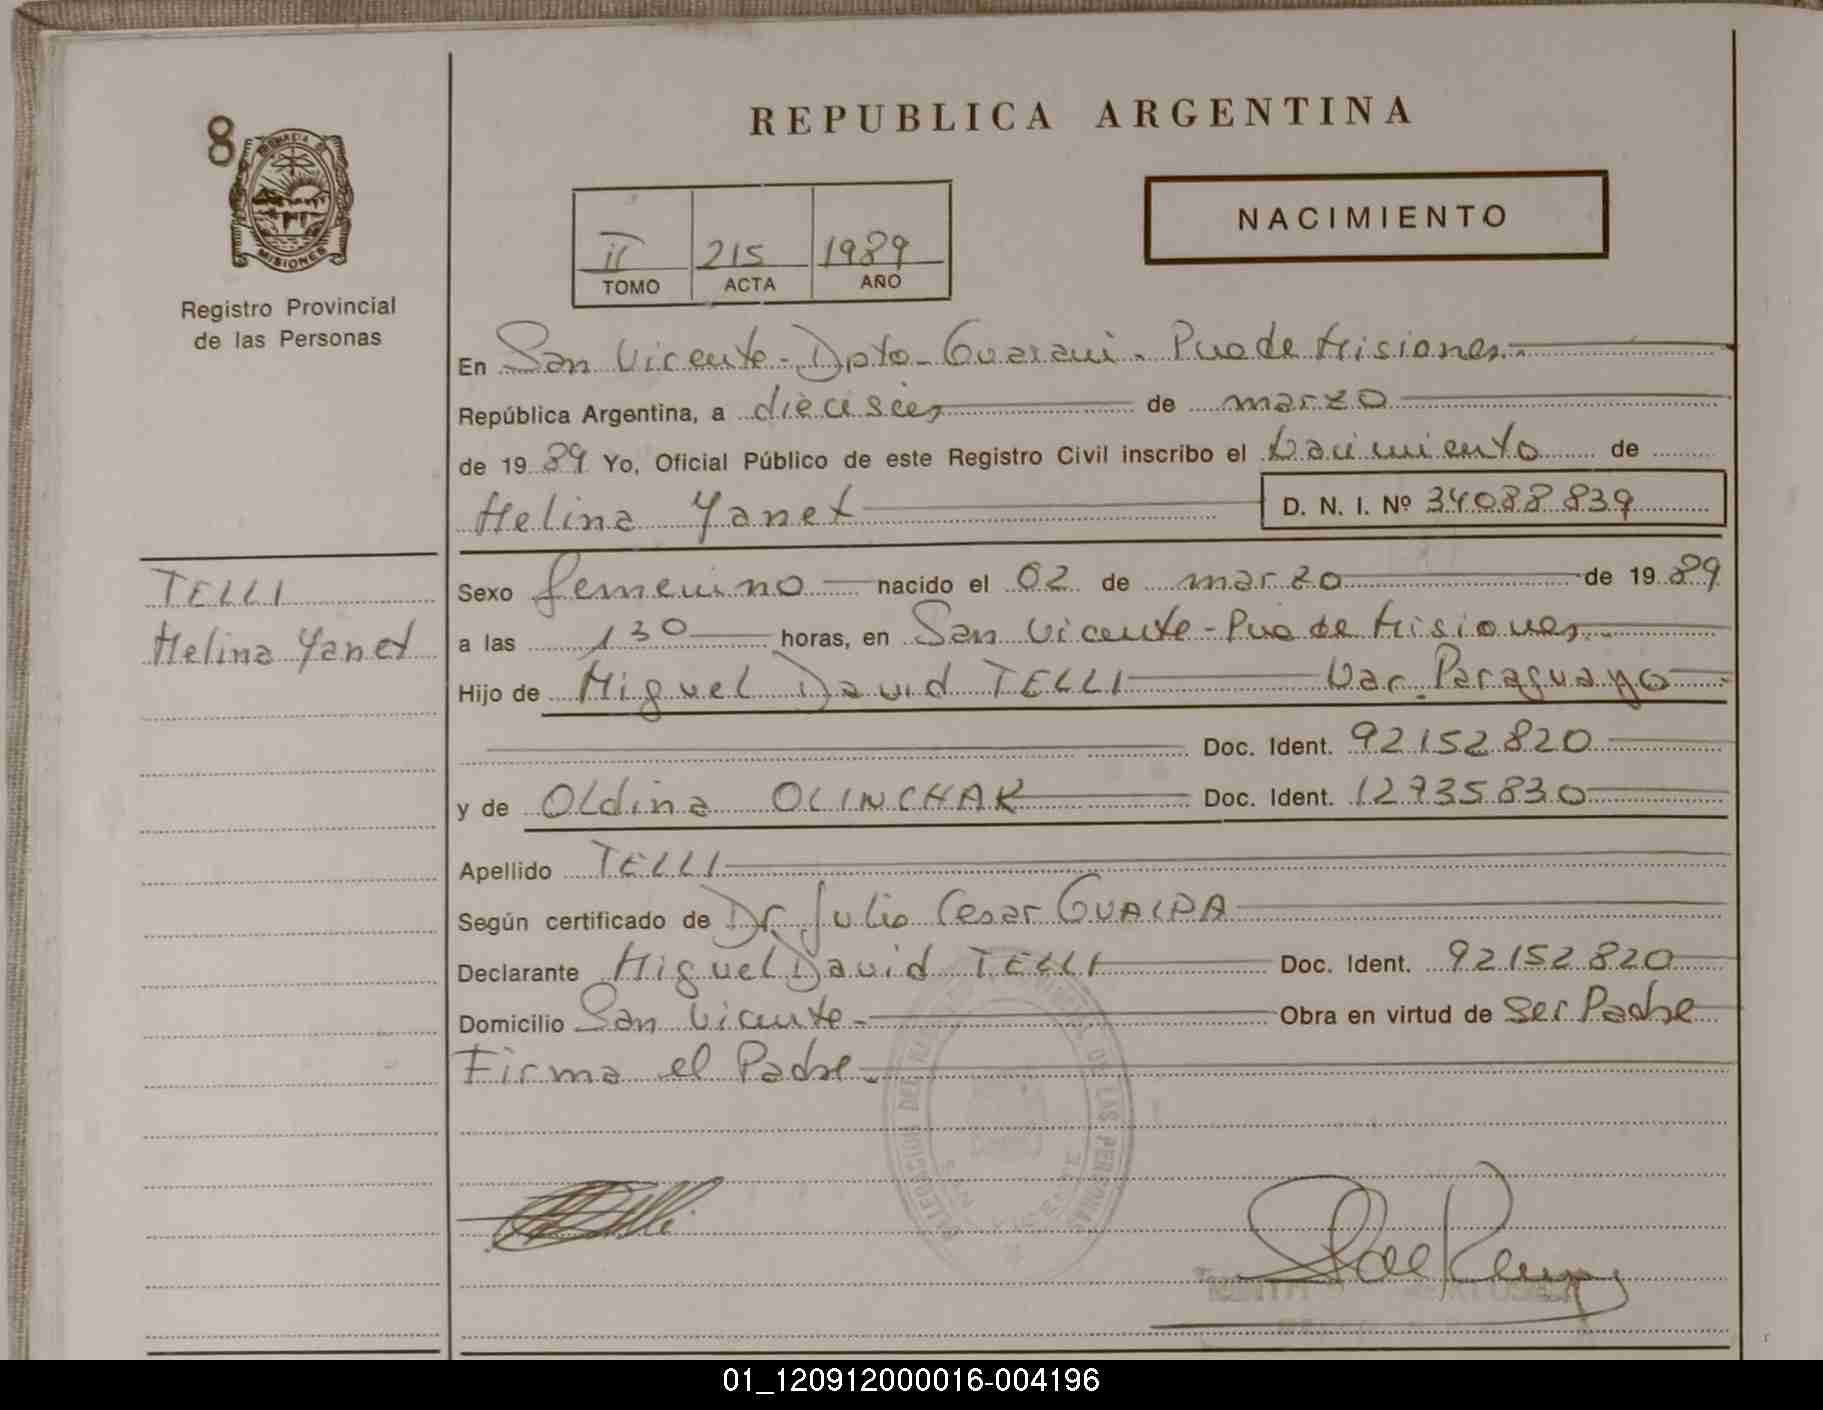 REPUBLICA ARGENTINA
8
MISIONES
Registro Provincial
de las Personas
II 215 1989
TOMO ACTA AÑO
NACIMIENTO
En San Vicente - Dpto - Guarani - Pvia de Misiones.
República Argentina, a dieciseis de marzo
de 1989 Yo, Oficial Público de este Registro Civil inscribo el Nacimiento de
Melina Yanet D. N. I. Nº 34088839
TELLI
Melina Yanet
Sexo femenino nacido el 02 de marzo de 1989
a las 130 horas, en San Vicente - Pvia de Misiones.
Hijo de Miguel David TELLI Nac. Paraguayo
Doc. Ident. 92152820
y de Oldina OLINCHAK Doc. Ident. 12735830
Apellido TELLI
Según certificado de Dr. Julio Cesar GUALDA
Declarante Miguel David TELLI Doc. Ident. 92152820
Domicilio San Vicente - Obra en virtud de Ser Padre
Firma el Padre.
DE LAS PERSONAS
01_120912000016-004196